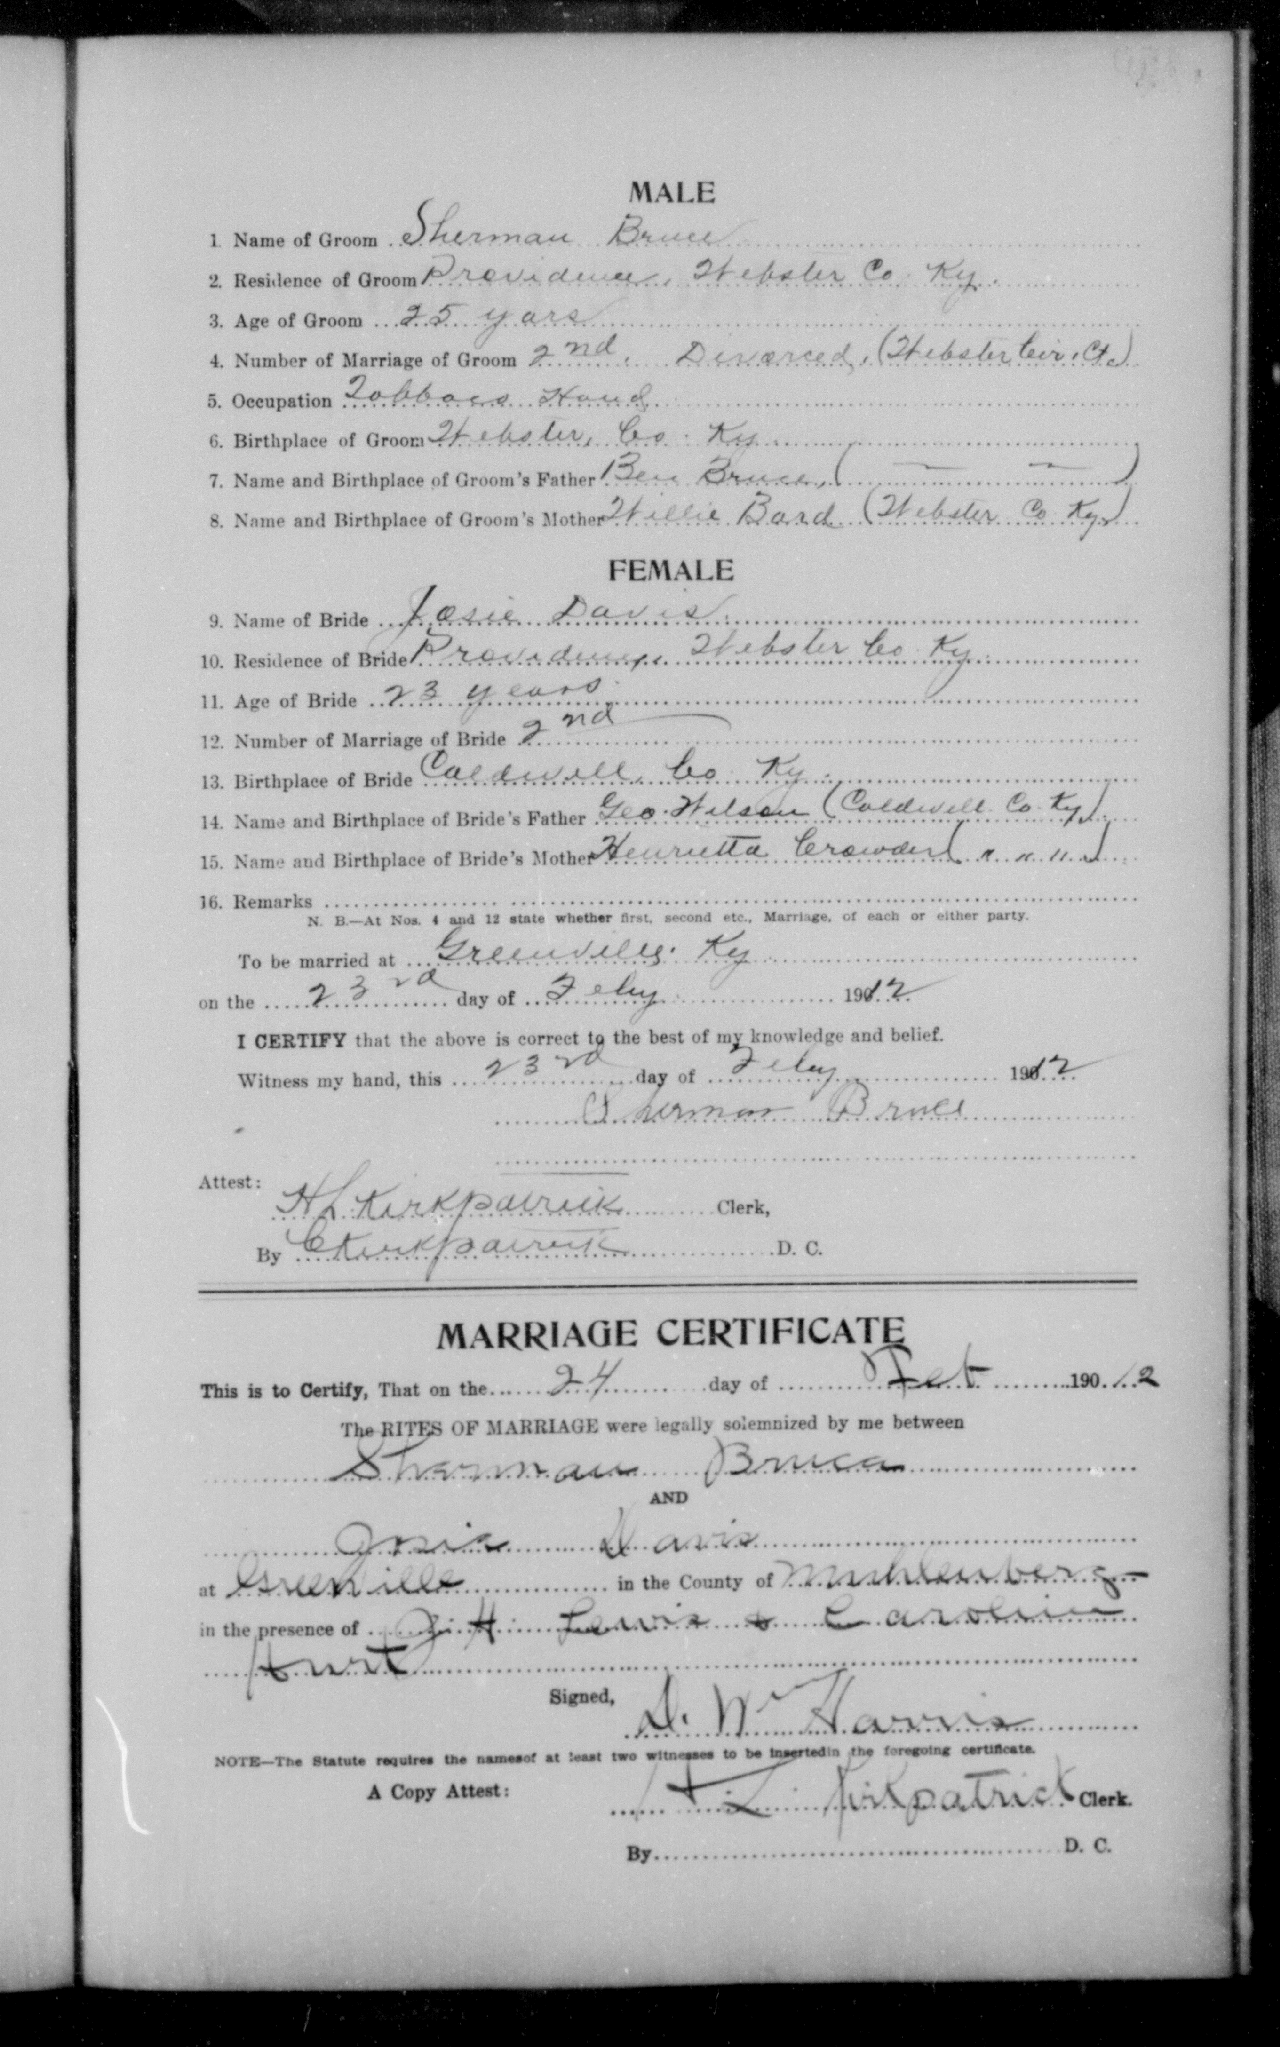 MALE
1. Name of Groom Sherman Bruce
2. Residence of Groom Providence, Webster Co. Ky.
3. Age of Groom 25 yars
4. Number of Marriage of Groom 2nd. Divorced, (Webster Cir. Ct.)
5. Occupation Tobbaco Hand
6. Birthplace of Groom Webster, Co. Ky
7. Name and Birthplace of Groom's Father Ben Bruce, ( — — )
8. Name and Birthplace of Groom's Mother Willie Bard (Webster Co Ky.)
FEMALE
9. Name of Bride Josie Davis
10. Residence of Bride Providence, Webster Co. Ky
11. Age of Bride 23 years
12. Number of Marriage of Bride 2nd
13. Birthplace of Bride Caldwell, Co. Ky
14. Name and Birthplace of Bride's Father Geo. Wilson (Caldwell Co. Ky)
15. Name and Birthplace of Bride's Mother Henrietta Crowder ( " " " )
16. Remarks
N. B.—At Nos. 4 and 12 state whether first, second etc., Marriage, of each or either party.
To be married at Greenville. Ky
on the 23rd day of Feby 1912
I CERTIFY that the above is correct to the best of my knowledge and belief.
Witness my hand, this 23rd day of Feby 1912
Sherman Bruce
Attest:
H L Kirkpatrick Clerk,
By C Kirkpatrick D. C.
MARRIAGE CERTIFICATE
This is to Certify, That on the 24 day of Feb 190 12
The RITES OF MARRIAGE were legally solemnized by me between
Sherman Bruce
AND
Josie Davis
at Greenville in the County of Muhlenberg
in the presence of J. H. Lewis & Carolin
Hurt
Signed, D. W. Harris
NOTE—The Statute requires the namesof at least two witnesses to be insertedin the foregoing certificate.
A Copy Attest:
H L Kirkpatrick Clerk.
By D. C.